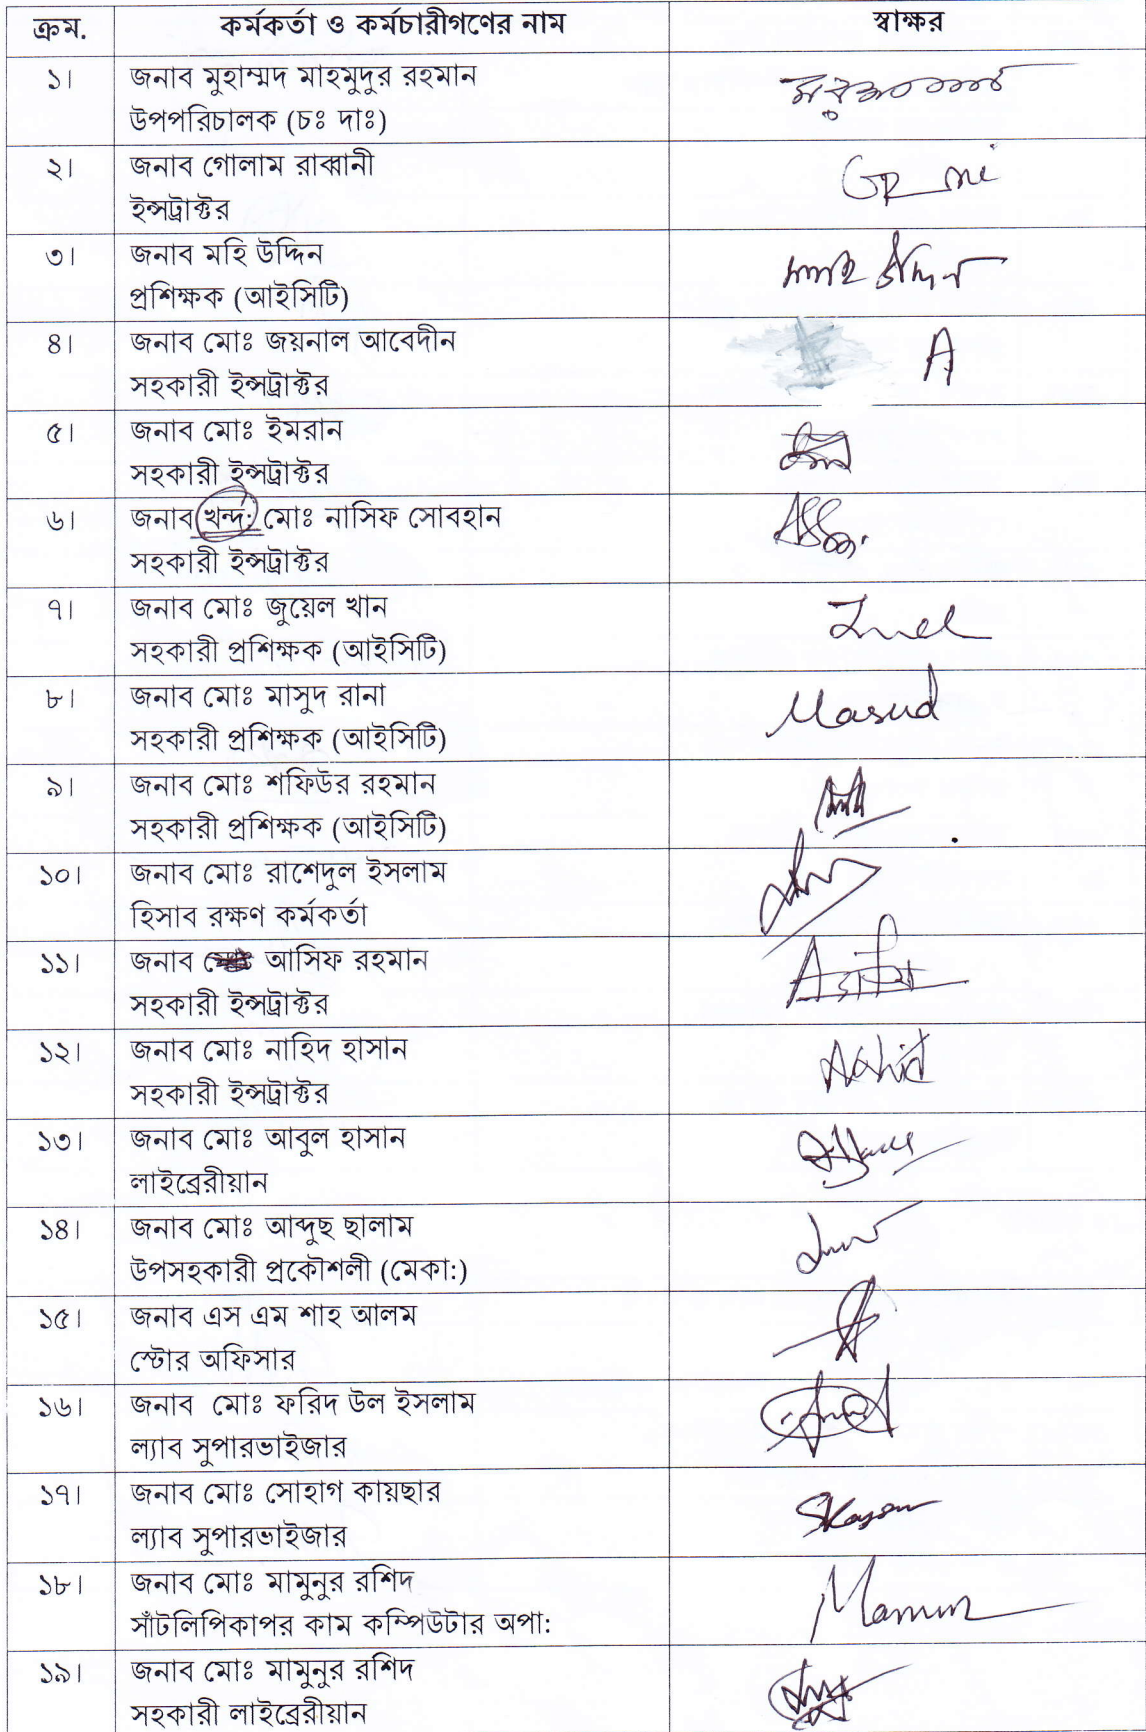 ক্রম. কর্মকর্তা ও কর্মচারীগণের নাম স্বাক্ষর
১। জনাব মুহাম্মদ মাহমুদুর রহমান
উপপরিচালক (চঃ দাঃ)
২। জনাব গোলাম রাব্বানী
ইন্সট্রাক্টর
৩। জনাব মহি উদ্দিন মহি উদ্দিন
প্রশিক্ষক (আইসিটি)
৪। জনাব মোঃ জয়নাল আবেদীন A
সহকারী ইন্সট্রাক্টর
৫। জনাব মোঃ ইমরান
সহকারী ইন্সট্রাক্টর
৬। জনাব খন্দ: মোঃ নাসিফ সোবহান
সহকারী ইন্সট্রাক্টর
৭। জনাব মোঃ জুয়েল খান
সহকারী প্রশিক্ষক (আইসিটি)
৮। জনাব মোঃ মাসুদ রানা Masud
সহকারী প্রশিক্ষক (আইসিটি)
৯। জনাব মোঃ শফিউর রহমান
সহকারী প্রশিক্ষক (আইসিটি)
১০। জনাব মোঃ রাশেদুল ইসলাম
হিসাব রক্ষণ কর্মকর্তা
১১। জনাব আসিফ রহমান
সহকারী ইন্সট্রাক্টর
১২। জনাব মোঃ নাহিদ হাসান
সহকারী ইন্সট্রাক্টর
১৩। জনাব মোঃ আবুল হাসান
লাইব্রেরীয়ান
১৪। জনাব মোঃ আব্দুছ ছালাম
উপসহকারী প্রকৌশলী (মেকা:)
১৫। জনাব এস এম শাহ আলম
স্টোর অফিসার
১৬। জনাব মোঃ ফরিদ উল ইসলাম
ল্যাব সুপারভাইজার
১৭। জনাব মোঃ সোহাগ কায়ছার
ল্যাব সুপারভাইজার
১৮। জনাব মোঃ মামুনুর রশিদ Mamun
সাঁটলিপিকাপর কাম কম্পিউটার অপা:
১৯। জনাব মোঃ মামুনুর রশিদ
সহকারী লাইব্রেরীয়ান